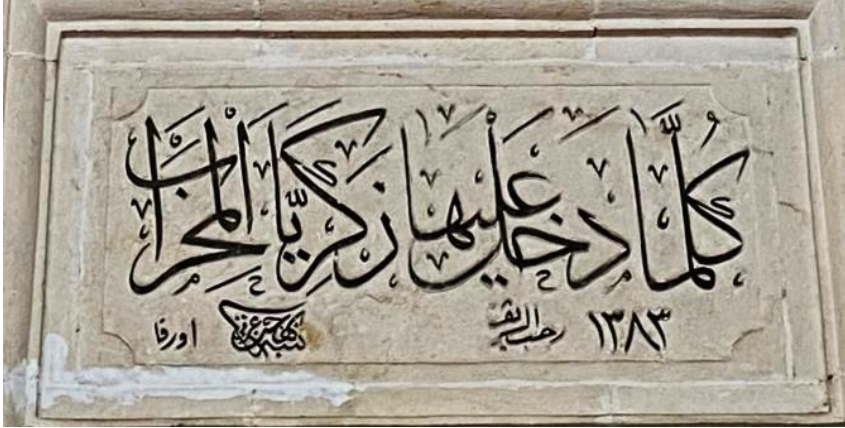 كُلَّمَا دَخَلَ عَلَيْهَا زَكَرِيَّا الْمِحْرَابَ
١٣٨٣ رجب الشريف كتبه اورفا